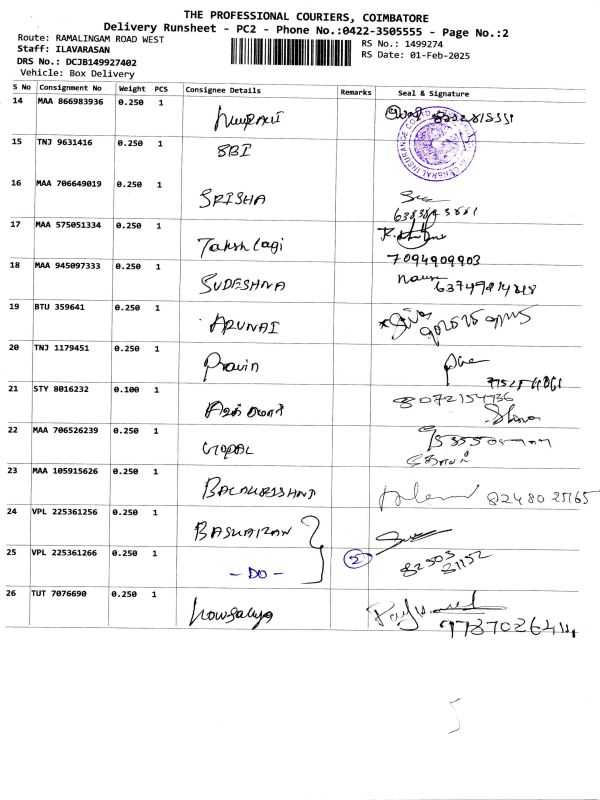 THE PROFESSIONAL COURIERS, COIMBATORE
Delivery Runsheet - PC2 - Phone No.:0422-3505555 - Page No.:2
Route: RAMALINGAM ROAD WEST
Staff: ILAVARASAN
DRS No.: DCJB149927402
Vehicle: Box Delivery
RS No.: 1499274
RS Date: 01-Feb-2025
S No Consignment No Weight PCS Consignee Details Remarks Seal & Signature
14 MAA 866983936 0.250 1
15 TNJ 9631416 0.250 1 SBI
16 MAA 706649019 0.250 1 SRISHA
17 MAA 575051334 0.250 1
7094909903
18 MAA 945097333 0.250 1 SUDESHNA
19 BTU 359641 0.250 1 ARUNAI
20 TNJ 1179451 0.250 1 Pravin
21 STY 8016232 0.100 1 8072154736
22 MAA 706526239 0.250 1 GOPAL
23 MAA 105915626 0.250 1 82480 25165
24 VPL 225361256 0.250 1 BASKARAN
25 VPL 225361266 0.250 1 - DO - 2
82503
81152
26 TUT 7076690 0.250 1 Kowsalya